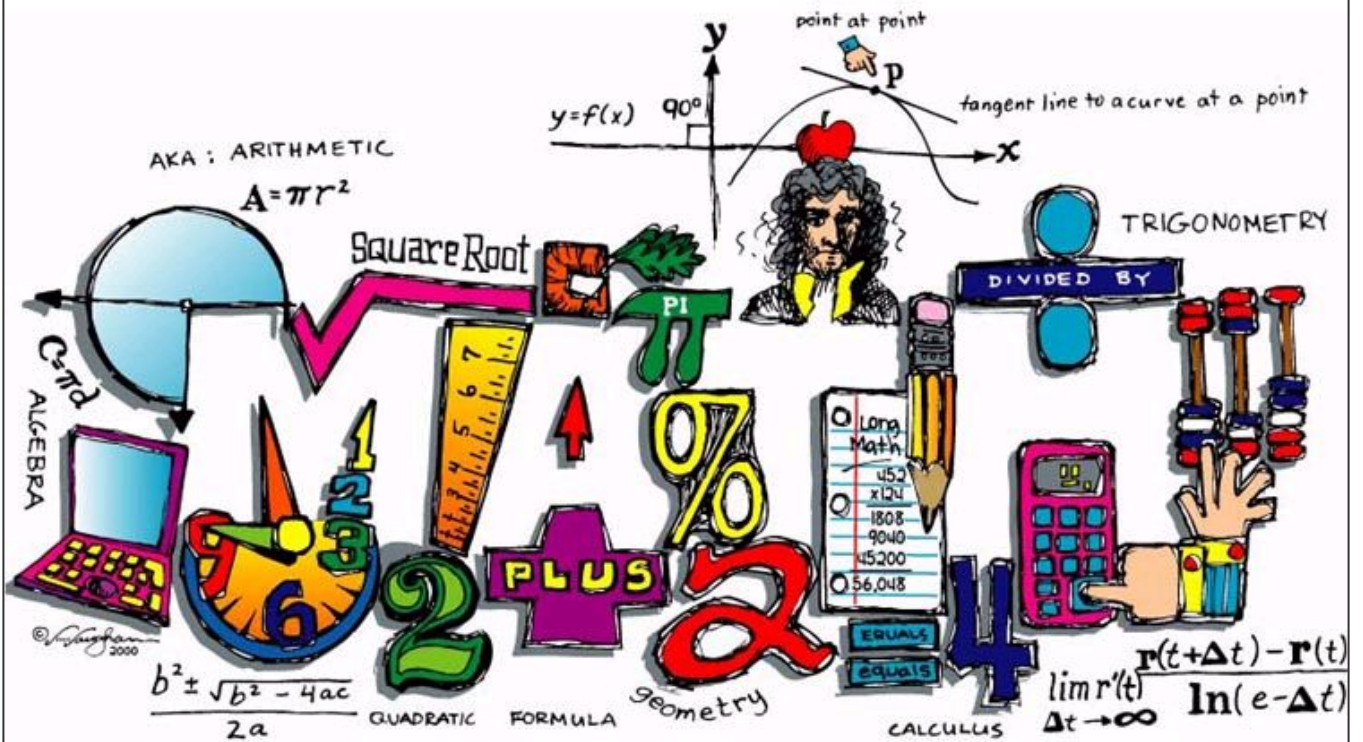 point at point
y
P
y=f(x)
90°
tangent line to a curve at a point
x
AKA : ARITHMETIC
A=πr²
Square Root
PI
TRIGONOMETRY
DIVIDED BY
C=πd
ALGEBRA
7
6
5
4
3
1
2
3
6
9
%
Long
Math
452
x124
1808
9040
45200
56,048
PLUS
2
2
EQUALS
equals
4
© 2000
b² ± √b² - 4ac
2a
QUADRATIC FORMULA
geometry
CALCULUS
lim r'(t)
Δt→∞
r(t+Δt)-r(t)
ln(e-Δt)